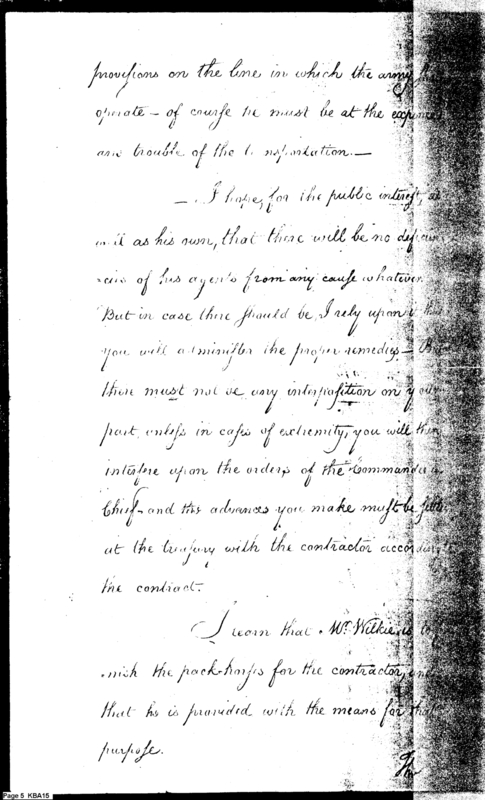 provisions on the line in which the army
operate – of course he must be at the expence
and trouble of the transportation. –
– I hope, for the public interest, as
well as his own, that there will be no
of his agents from any cause whatever.
But in case there should be, I rely upon it that
you will administer the proper remedies –
there must not be any interposition on your
part, unless in cases of extremity, you will then
interfere upon the orders of the Commander in
Chief – and the advances you make must be
at the treasury with the contractor according to
the contract.
I learn that Mr. Wilkie is
the pack-horses for the contractor, and
that he is provided with the means for that
purpose.
Page 5 KBA15